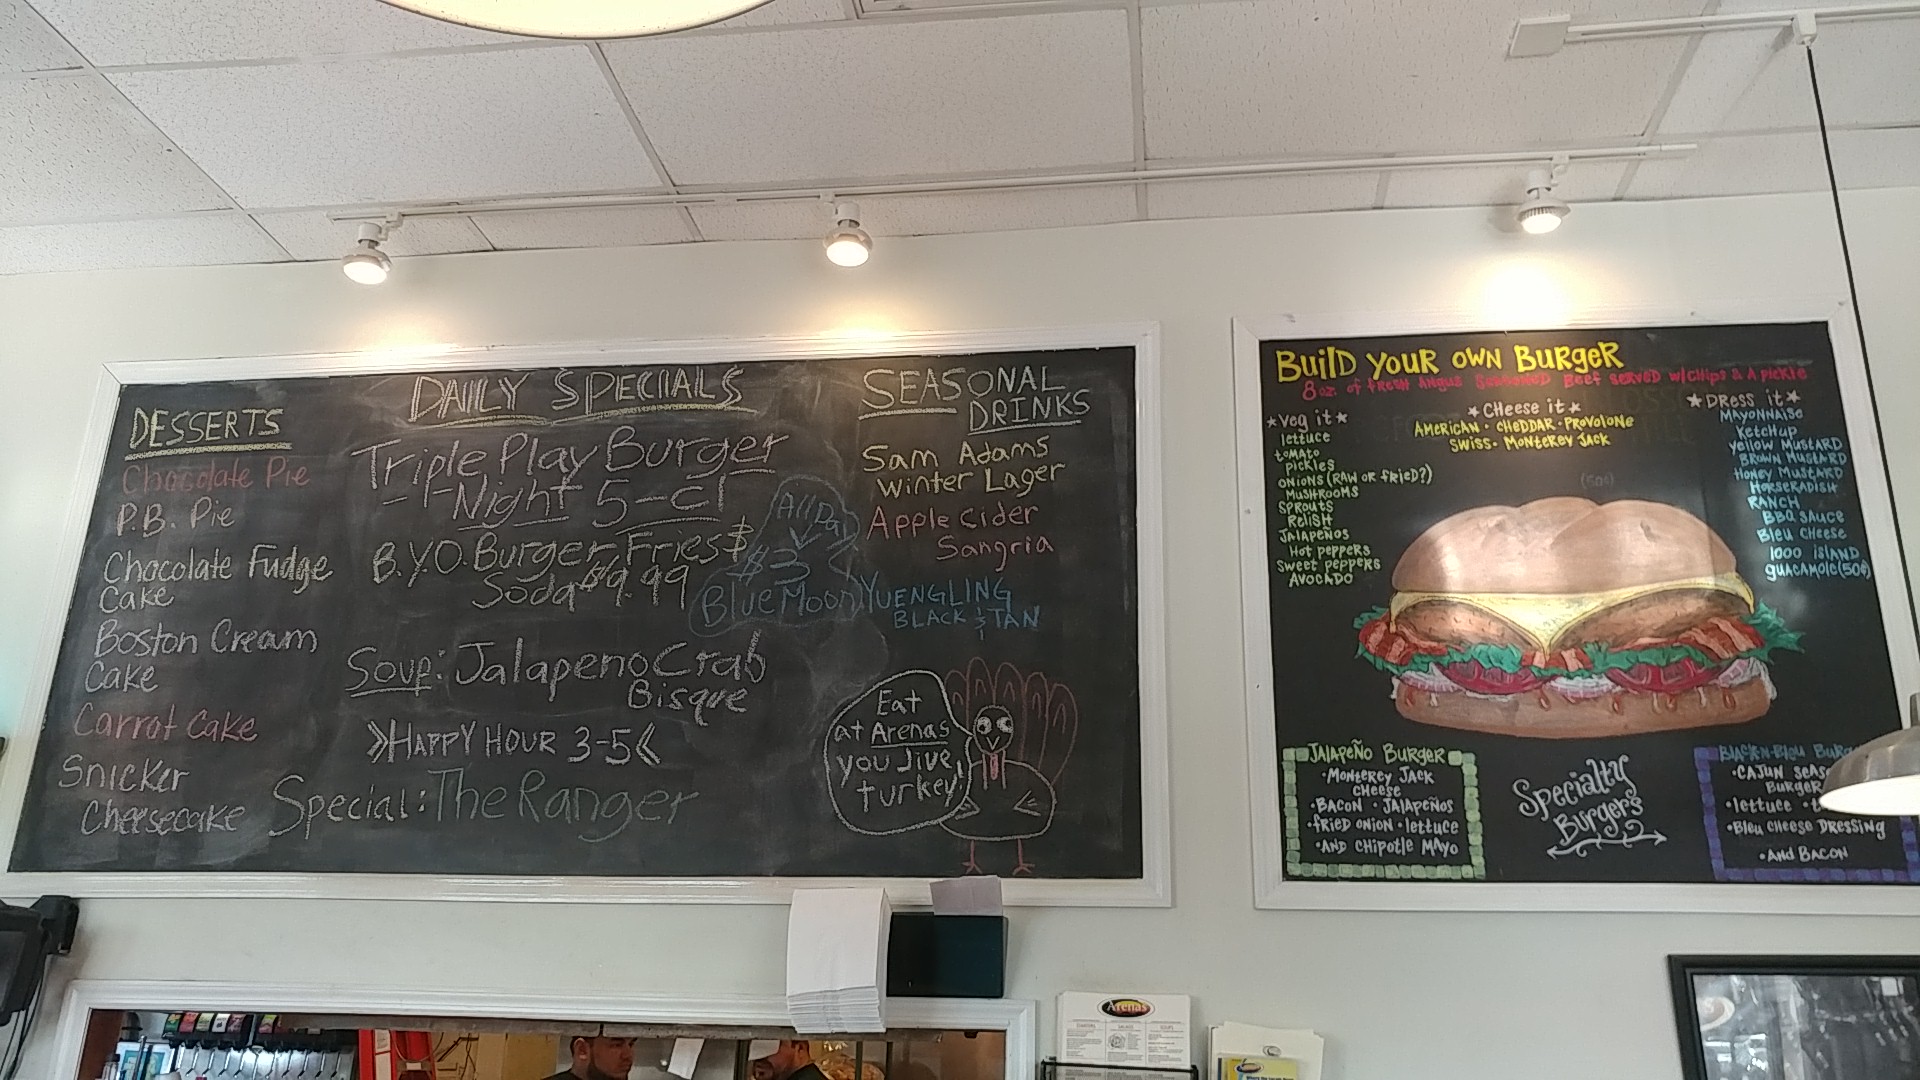 DESSERTS
Chocolate Pie
P.B. Pie
Chocolate Fudge
Cake
Boston Cream
Cake
Carrot Cake
Snicker
Cheesecake
DAILY SPECIALS
Triple Play Burger
Night 5-cl
B.Y.O. Burger, Fries &
Soda $9.99
All Day
$3
Blue Moon
Soup: Jalapeno Crab
Bisque
HAPPY HOUR 3-5
Special: The Ranger
SEASONAL
DRINKS
Sam Adams
Winter Lager
Apple Cider
Sangria
YUENGLING
BLACK & TAN
Eat
at Arenas
you Jive
turkey!
BUILD YOUR OWN BURGER
8oz. of FRESH ANGUS SEASONED BEEF SERVED w/CHIPS & A PICKLE
Veg it
lettuce
tomato
pickles
onions (RAW or fried?)
MUSHROOMS
SPROUTS
RELISH
JALAPEÑOS
Hot peppers
Sweet peppers
AVOCADO
CHeese it
AMERICAN · CHEDDAR · PROVOLONE
SWISS · MONTEREY JACK
(50¢)
DRESS it
MAYONNAISE
KETCHUP
YELLOW MUSTARD
BROWN MUSTARD
HONEY MUSTARD
HORSERADISH
RANCH
BBQ SAUCE
Bleu CHeese
1000 ISLAND
GUACAMOLE (50¢)
JALAPEÑO BURGER
·MONTEREY JACK
CHEESE
·BACON ·JALAPEÑOS
·fRiED ONiON ·lettuce
·AND CHIPOTLE MAYO
Specialty
Burgers
·CAJUN
BURGER
·lettuce
·Bleu CHeese DRESSING
·And BACON
Arenas